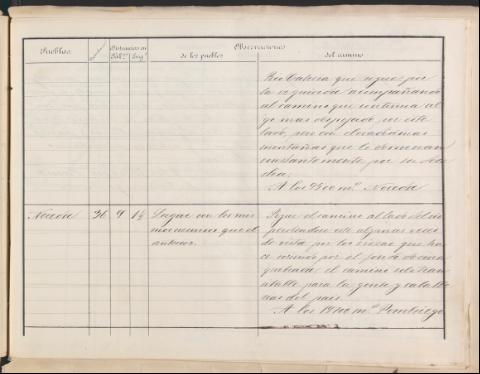 Pueblos
Distancias en
Kil.s
Leg.s
Observaciones
de los pueblos
del camino
Rio Cabrera que sigue por
la izquierda acompañando
al camino que continua al
go mas despejado en este
lado, pero con elevadisimas
montañas que le dominan
constantemente por su
A los 9500 m.s Noceda
Noceda 36 9 1½ Lugar con los mis
mos recursos que el
anterior.
Sigue el camino al lado del rio
perdiendose este algunas veces
de vista por los que ha
ce corriendo por el fondo de una
quebrada el camino solo tran
sitable para la gente y caballe
rias del pais.
A los 19400 m.s Pombriego